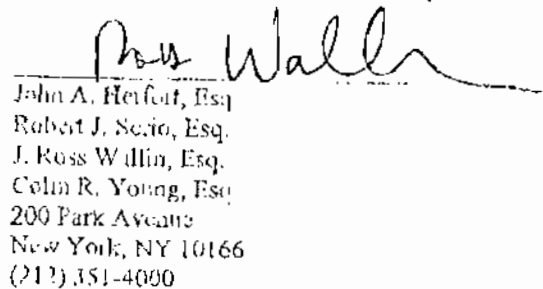 Ross Wallin
John A. Herfort, Esq
Robert J. Serio, Esq.
J. Ross Wallin, Esq.
Colin R. Young, Esq
200 Park Avenue
New York, NY 10166
(212) 351-4000